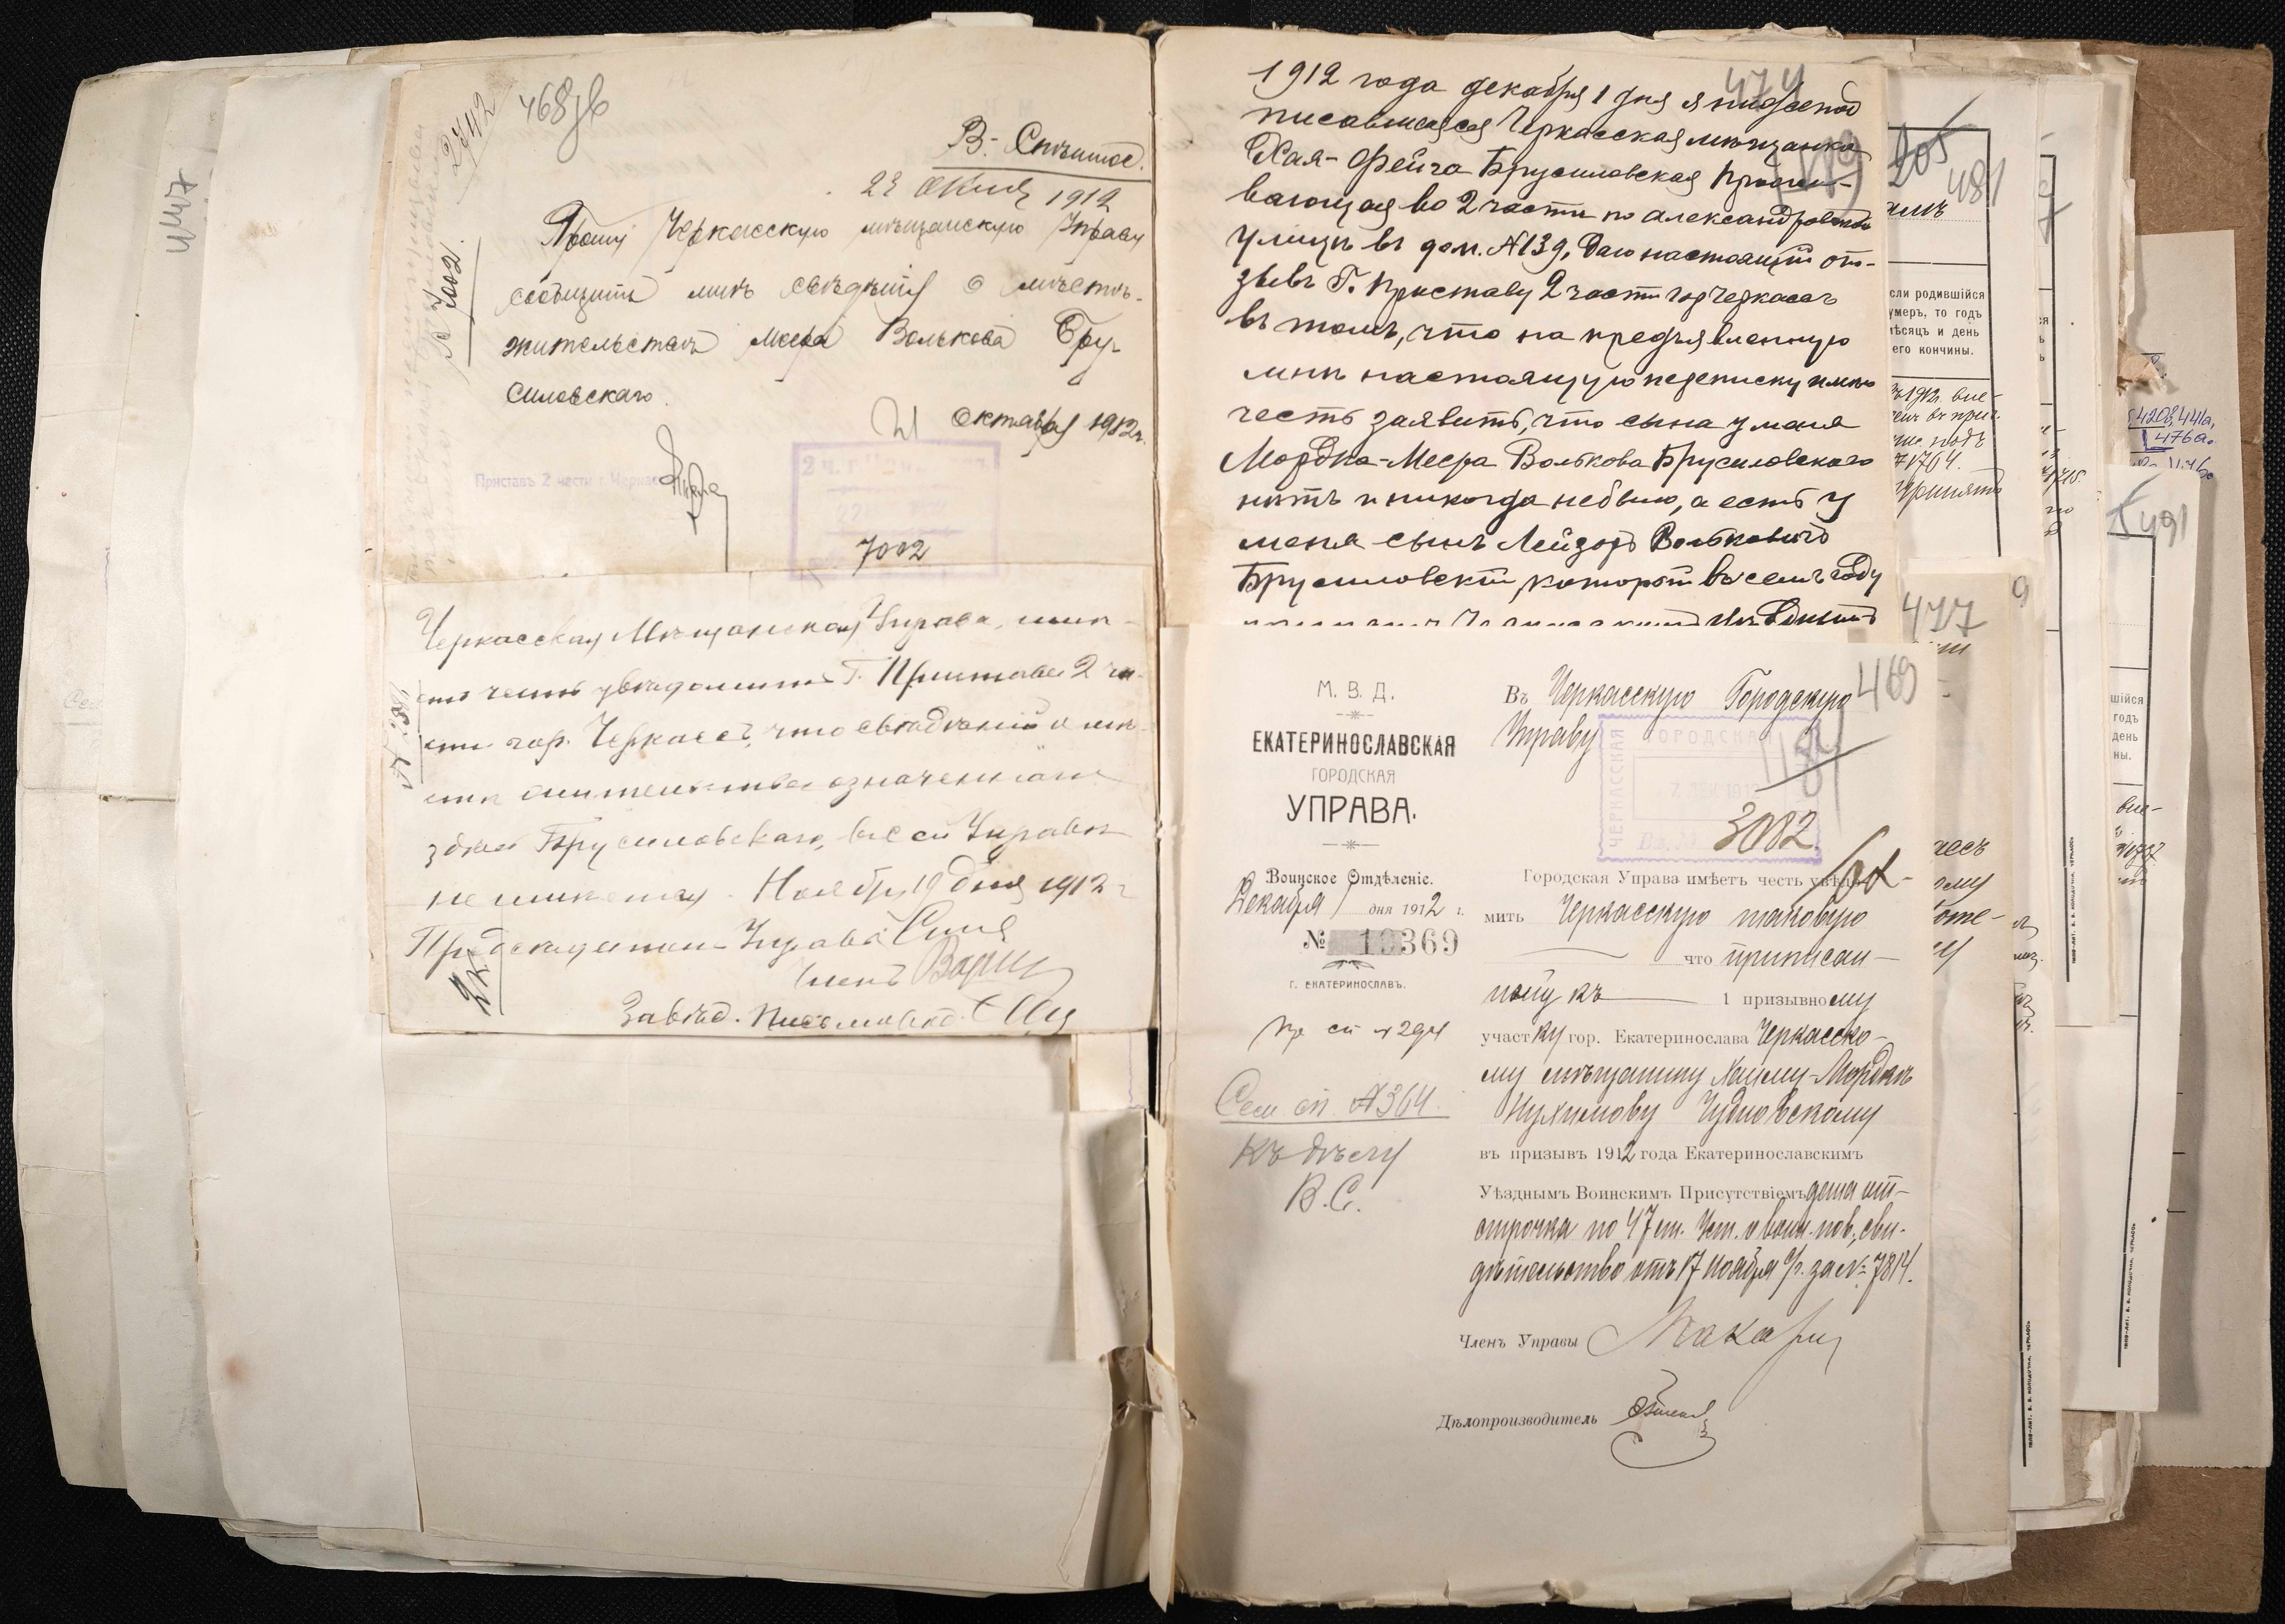 4447
2742
468 об
В. Спешное.
22 окт 1912
№ 7002.
Прошу Черкасскую мѣщанскую Управу
сообщить мнѣ свѣдѣнія о мѣсто-
жительствѣ Меера Волькова Бру-
силовскаго.
21 октября 1912 г.
Приставъ 2 части г. Черкассъ
7002
Черкасская Мѣщанская Управа, имѣ-
етъ честь увѣдомить Г. Пристава 2 ча-
сти гор. Черкассъ, что свѣдѣній о мѣ-
стѣ жительства означеннаго
Брусиловскаго, въ сей Управѣ
не имѣется. Ноября 19 дня 1912 г
Предсѣдатель Управы
Членъ
Завѣд. Письмовод.
474
1912 года декабря 1 дня я нижепод
писавшаяся Черкасская мѣщанка
Хая-Фейга Брусиловская прожи-
вающая во 2 части по Александровской
улицѣ въ дом. №139, даю настоящій от-
зывъ Г. Приставу 2 части гор Черкассъ
въ томъ, что на предъявленную
мнѣ настоящую переписку имѣю
честь заявить, что сына у меня
Мордка-Меера Волькова Брусиловскаго
нѣтъ и никогда не было, а есть у
меня сынъ Лейзоръ Вольковичъ
Брусиловскій, который въ семъ году
205
481
сли родившійся
умеръ, то годъ
мѣсяцъ и день
его кончины.
477
9
420в, 441а,
476а.
491
шійся
годъ
день
ны.
469
М. В. Д.
ЕКАТЕРИНОСЛАВСКАЯ
ГОРОДСКАЯ
УПРАВА.
Воинское Отдѣленіе.
Декабря 1 дня 1912 г.
№ 10369
Г. ЕКАТЕРИНОСЛАВЪ.
Сем сп. №364.
Къ дѣлу
В.С.
Въ Черкасскую Городскую
Управу
ЧЕРКАССКАЯ ГОРОДСКАЯ
3082
Городская Управа имѣетъ честь увѣдо-
мить Черкасскую таковую
что приписан-
ному къ 1 призывному
участку гор. Екатеринослава Черкасско-
му мѣщанину Хаиму-Мордкѣ
Нухимову Чудновскому
въ призывъ 1912 года Екатеринославскимъ
Уѣзднымъ Воинскимъ Присутствіемъ дана от-
срочка по 47 ст. Уст. о воин. пов., сви-
дѣтельство отъ 17 ноября с/г. за №: 7814.
Членъ Управы
Дѣлопроизводитель